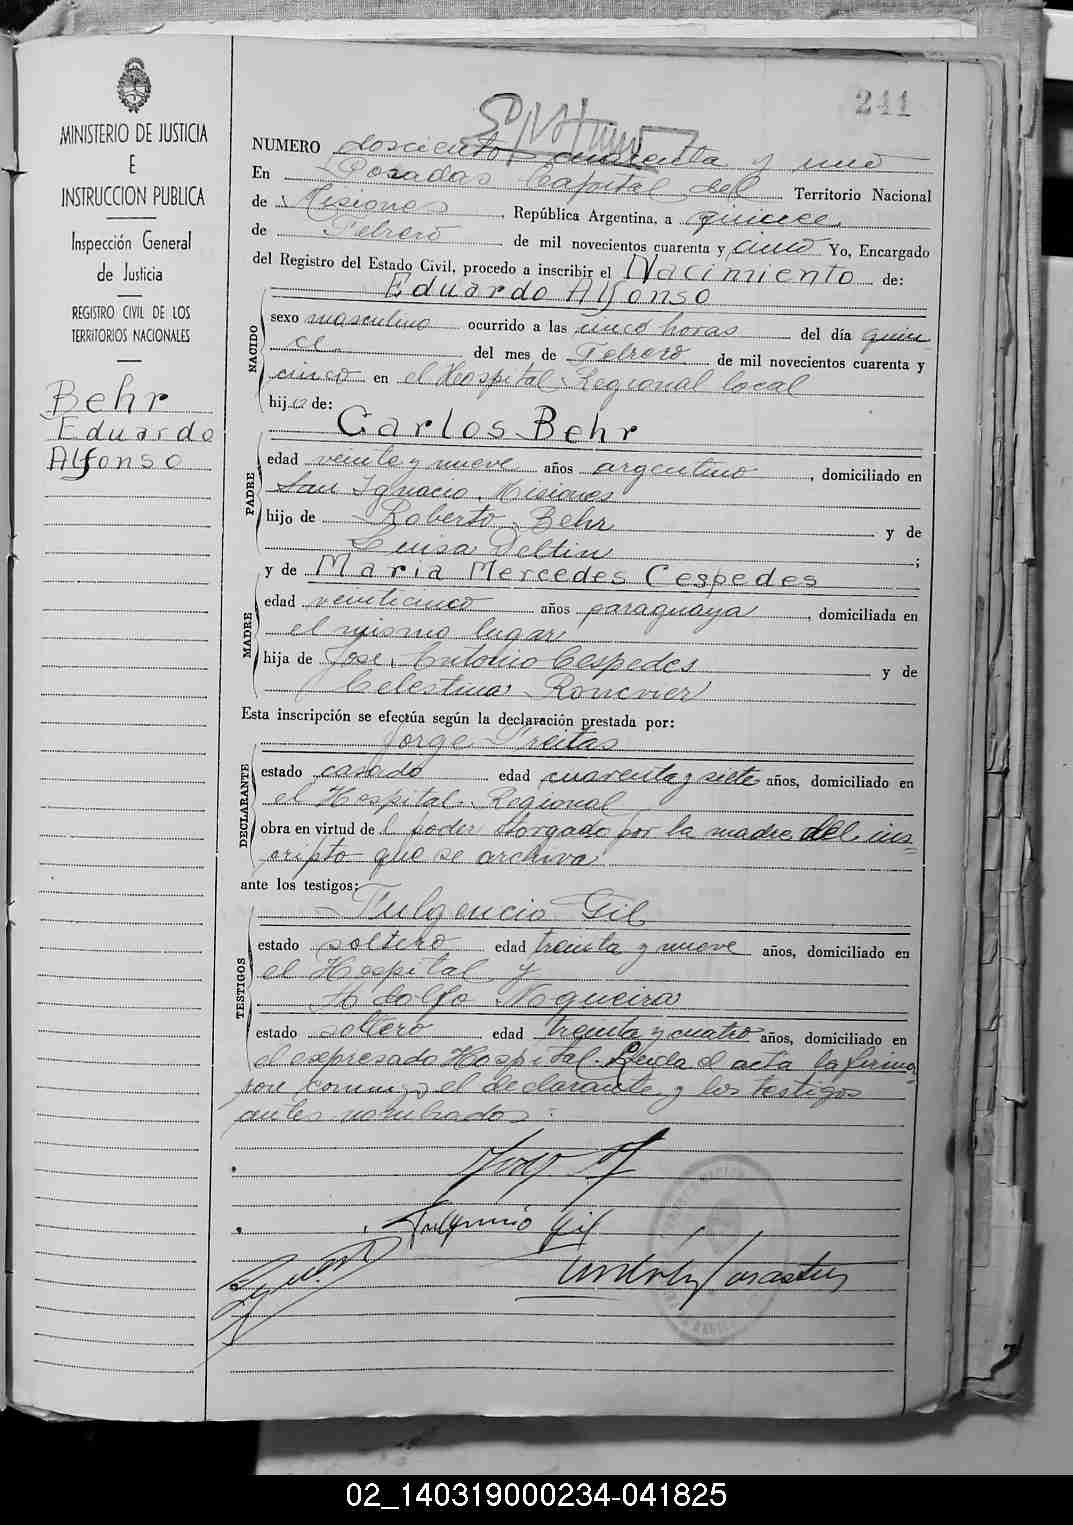 241
MINISTERIO DE JUSTICIA
E
INSTRUCCION PUBLICA
Inspección General
de Justicia
REGISTRO CIVIL DE LOS
TERRITORIOS NACIONALES
Behr
Eduardo
Alfonso
NUMERO doscientos cuarenta y uno
En Posadas Capital del Territorio Nacional
de Misiones, República Argentina, a quince
de Febrero de mil novecientos cuarenta y cinco Yo, Encargado
del Registro del Estado Civil, procedo a inscribir el Nacimiento de:
Eduardo Alfonso
NACIDO
sexo masculino ocurrido a las cinco horas del día quin-
ce del mes de Febrero de mil novecientos cuarenta y
cinco en el Hospital Regional local
hijo de:
Carlos Behr
PADRE
edad veinte y nueve años argentino, domiciliado en
San Ignacio, Misiones
hijo de Roberto Behr y de
Luisa Deltin;
y de Maria Mercedes Cespedes
MADRE
edad veinticinco años paraguaya, domiciliada en
el mismo lugar
hija de José Antonio Cespedes y de
Celestina
Esta inscripción se efectúa según la declaración prestada por:
Jorge Freitas
DECLARANTE
estado casado edad cuarenta y siete años, domiciliado en
el Hospital Regional
obra en virtud del poder otorgado por la madre del ins-
cripto que se archiva
ante los testigos:
Fulgencio Gil
TESTIGOS
estado soltero edad treinta y nueve años, domiciliado en
el Hospital y
Adolfo Nqueira
estado soltero edad treinta y cuatro años, domiciliado en
el expresado Hospital. Leída el acta la firma-
ron conmigo el declarante y los testigos
antes nombrados:
Fulgencio Gil
02_140319000234-041825